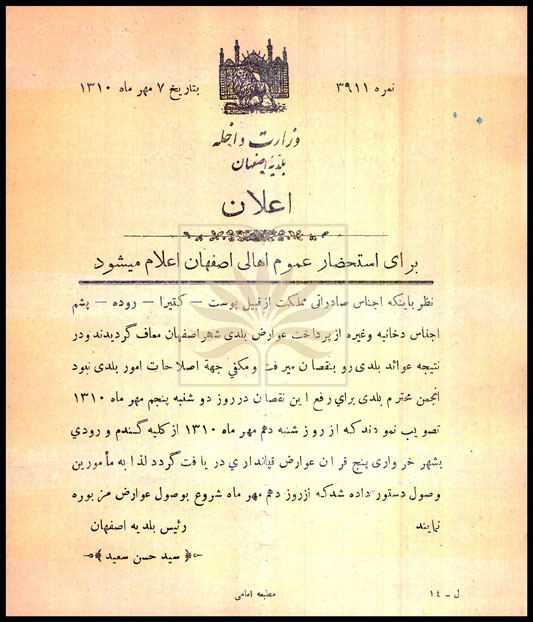 نمره ۳۹۱۱
بتاریخ ۷ مهر ماه ۱۳۱۰
وزارت داخله
بلدیهٔ اصفهان
اعلان
برای استحضار عموم اهالی اصفهان اعلام میشود
نظر باینکه اجناس صادراتی مملکت از قبیل پوست – کتیرا – روده – پشم
اجناس دخانیه وغیره از پرداخت عوارض بلدی شهر اصفهان معاف گردیدند و در
نتیجه عوائد بلدی رو بنقصان میرفت و مکفی جهة اصلاحات امور بلدی نبود
انجمن محترم بلدی برای رفع این نقصان در روز دو شنبه پنجم مهر ماه ۱۳۱۰
تصویب نمودند که از روز شنبه دهم مهر ماه ۱۳۱۰ از کلیه گندم و رودی
بشهر خرواری پنج قران عوارض قپانداری دریافت گردد لذا به مأمورین
وصول دستور داده شد که از روز دهم مهر ماه شروع بوصول عوارض مزبوره
نمایند
رئیس بلدیه اصفهان
سید حسن سعید
ل – ۱٤
مطبعه امامی